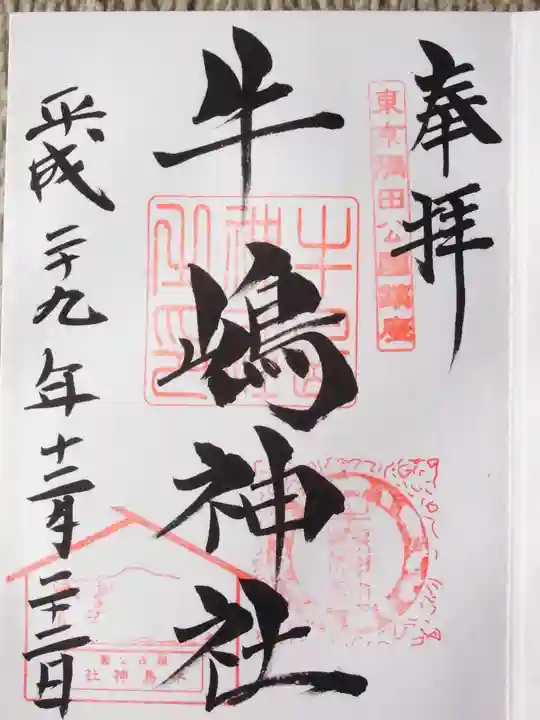 奉拝
東京隅田公園鎮座
牛嶋神社
平成二十九年十二月二十二日
牛嶋神社